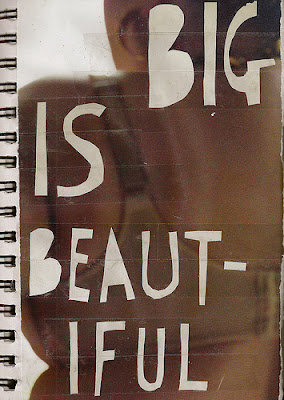 BIG
IS
BEAUT-
IFUL